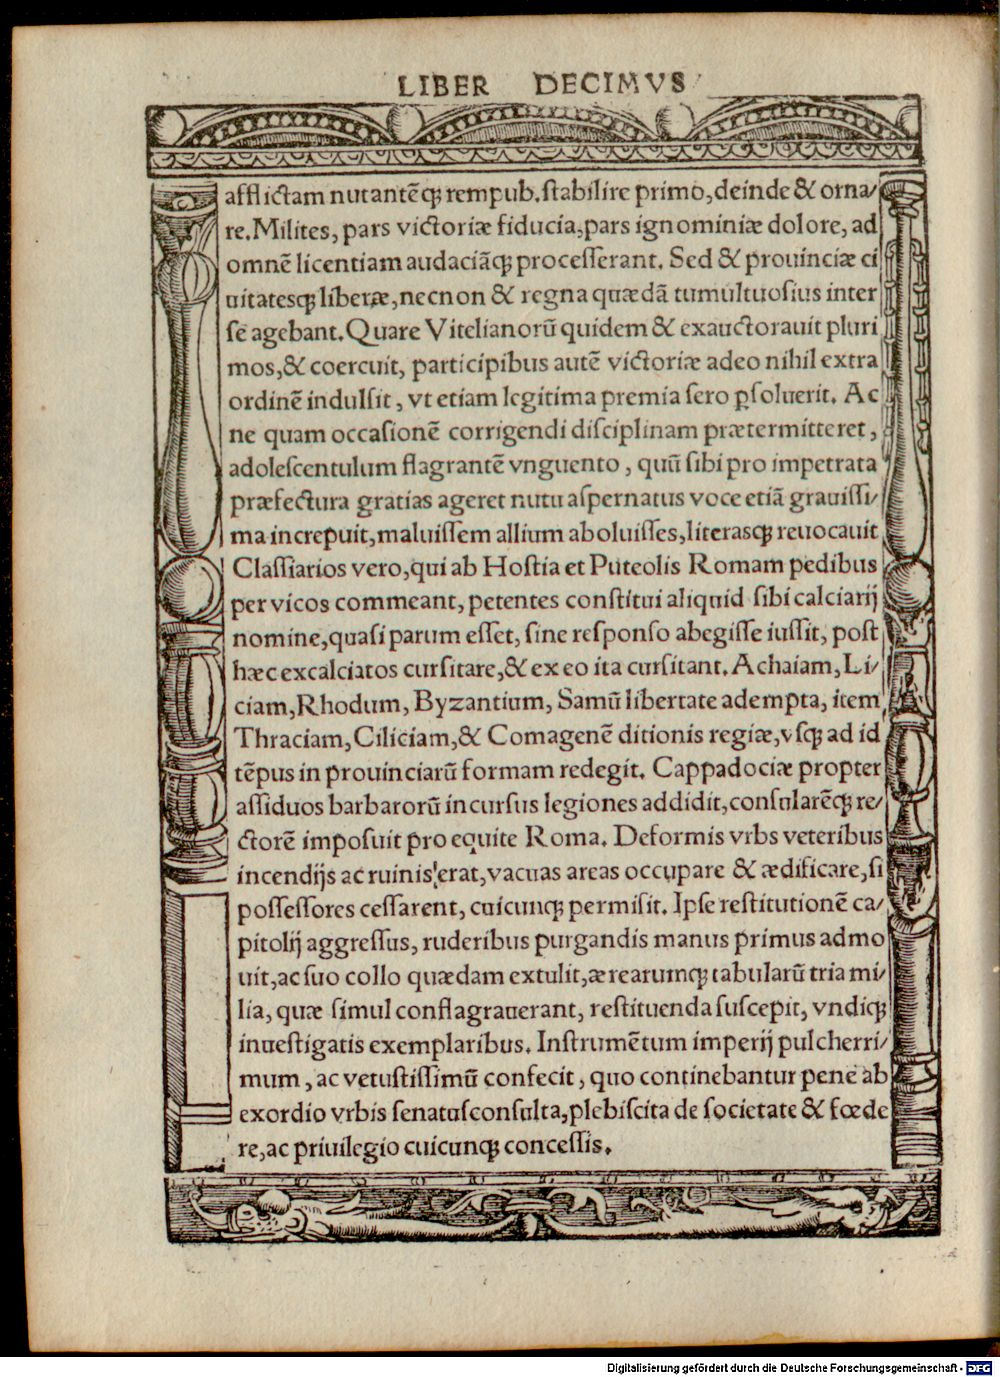 LIBER DECIMVS
afflictam nutantēq; rempub. stabilire primo, deinde & orna/
re. Milites, pars victoriæ fiducia, pars ignominiæ dolore, ad
omnē licentiam audaciāq; processerant. Sed & prouinciæ ci
uitatesq; liberæ, necnon & regna quædā tumultuosius inter
se agebant. Quare Vitelianorū quidem & exauctorauit pluri
mos, & coercuit, participibus autē victoriæ adeo nihil extra
ordinē indulsit, vt etiam legitima premia sero ꝑsoluerit. Ac
ne quam occasionē corrigendi disciplinam prætermitteret,
adolescentulum flagrantē vnguento, quū sibi pro impetrata
præfectura gratias ageret nutu aspernatus voce etiā grauissi/
ma increpuit, maluissem allium aboluisses, literasq; reuocauit
Classiarios vero, qui ab Hostia et Puteolis Romam pedibus
per vicos commeant, petentes constitui aliquid sibi calciarij
nomine, quasi parum esset, sine responso abegisse iussit, post
hæc excalciatos cursitare, & ex eo ita cursitant. Achaiam, Li/
ciam, Rhodum, Byzantium, Samū libertate adempta, item
Thraciam, Ciliciam, & Comagenē ditionis regiæ, vsq; ad id
tēpus in prouinciarū formam redegit. Cappadociæ propter
assiduos barbarorū incursus legiones addidit, consularēq; re/
ctorē imposuit pro equite Roma. Deformis vrbs veteribus
incendijs ac ruinis erat, vacuas areas occupare & ædificare, si
possessores cessarent, cuicunq; permisit. Ipse restitutionē ca/
pitolij aggressus, ruderibus purgandis manus primus admo
uit, ac suo collo quædam extulit, ærearumq; tabularū tria mi/
lia, quæ simul conflagrauerant, restituenda suscepit, vndiq;
inuestigatis exemplaribus. Instrumētum imperij pulcherri/
mum, ac vetustissimū confecit, quo continebantur pene ab
exordio vrbis senatusconsulta, plebiscita de societate & fœde
re, ac priuilegio cuicunq; concessis.
Digitalisierung gefördert durch die Deutsche Forschungsgemeinschaft - DFG